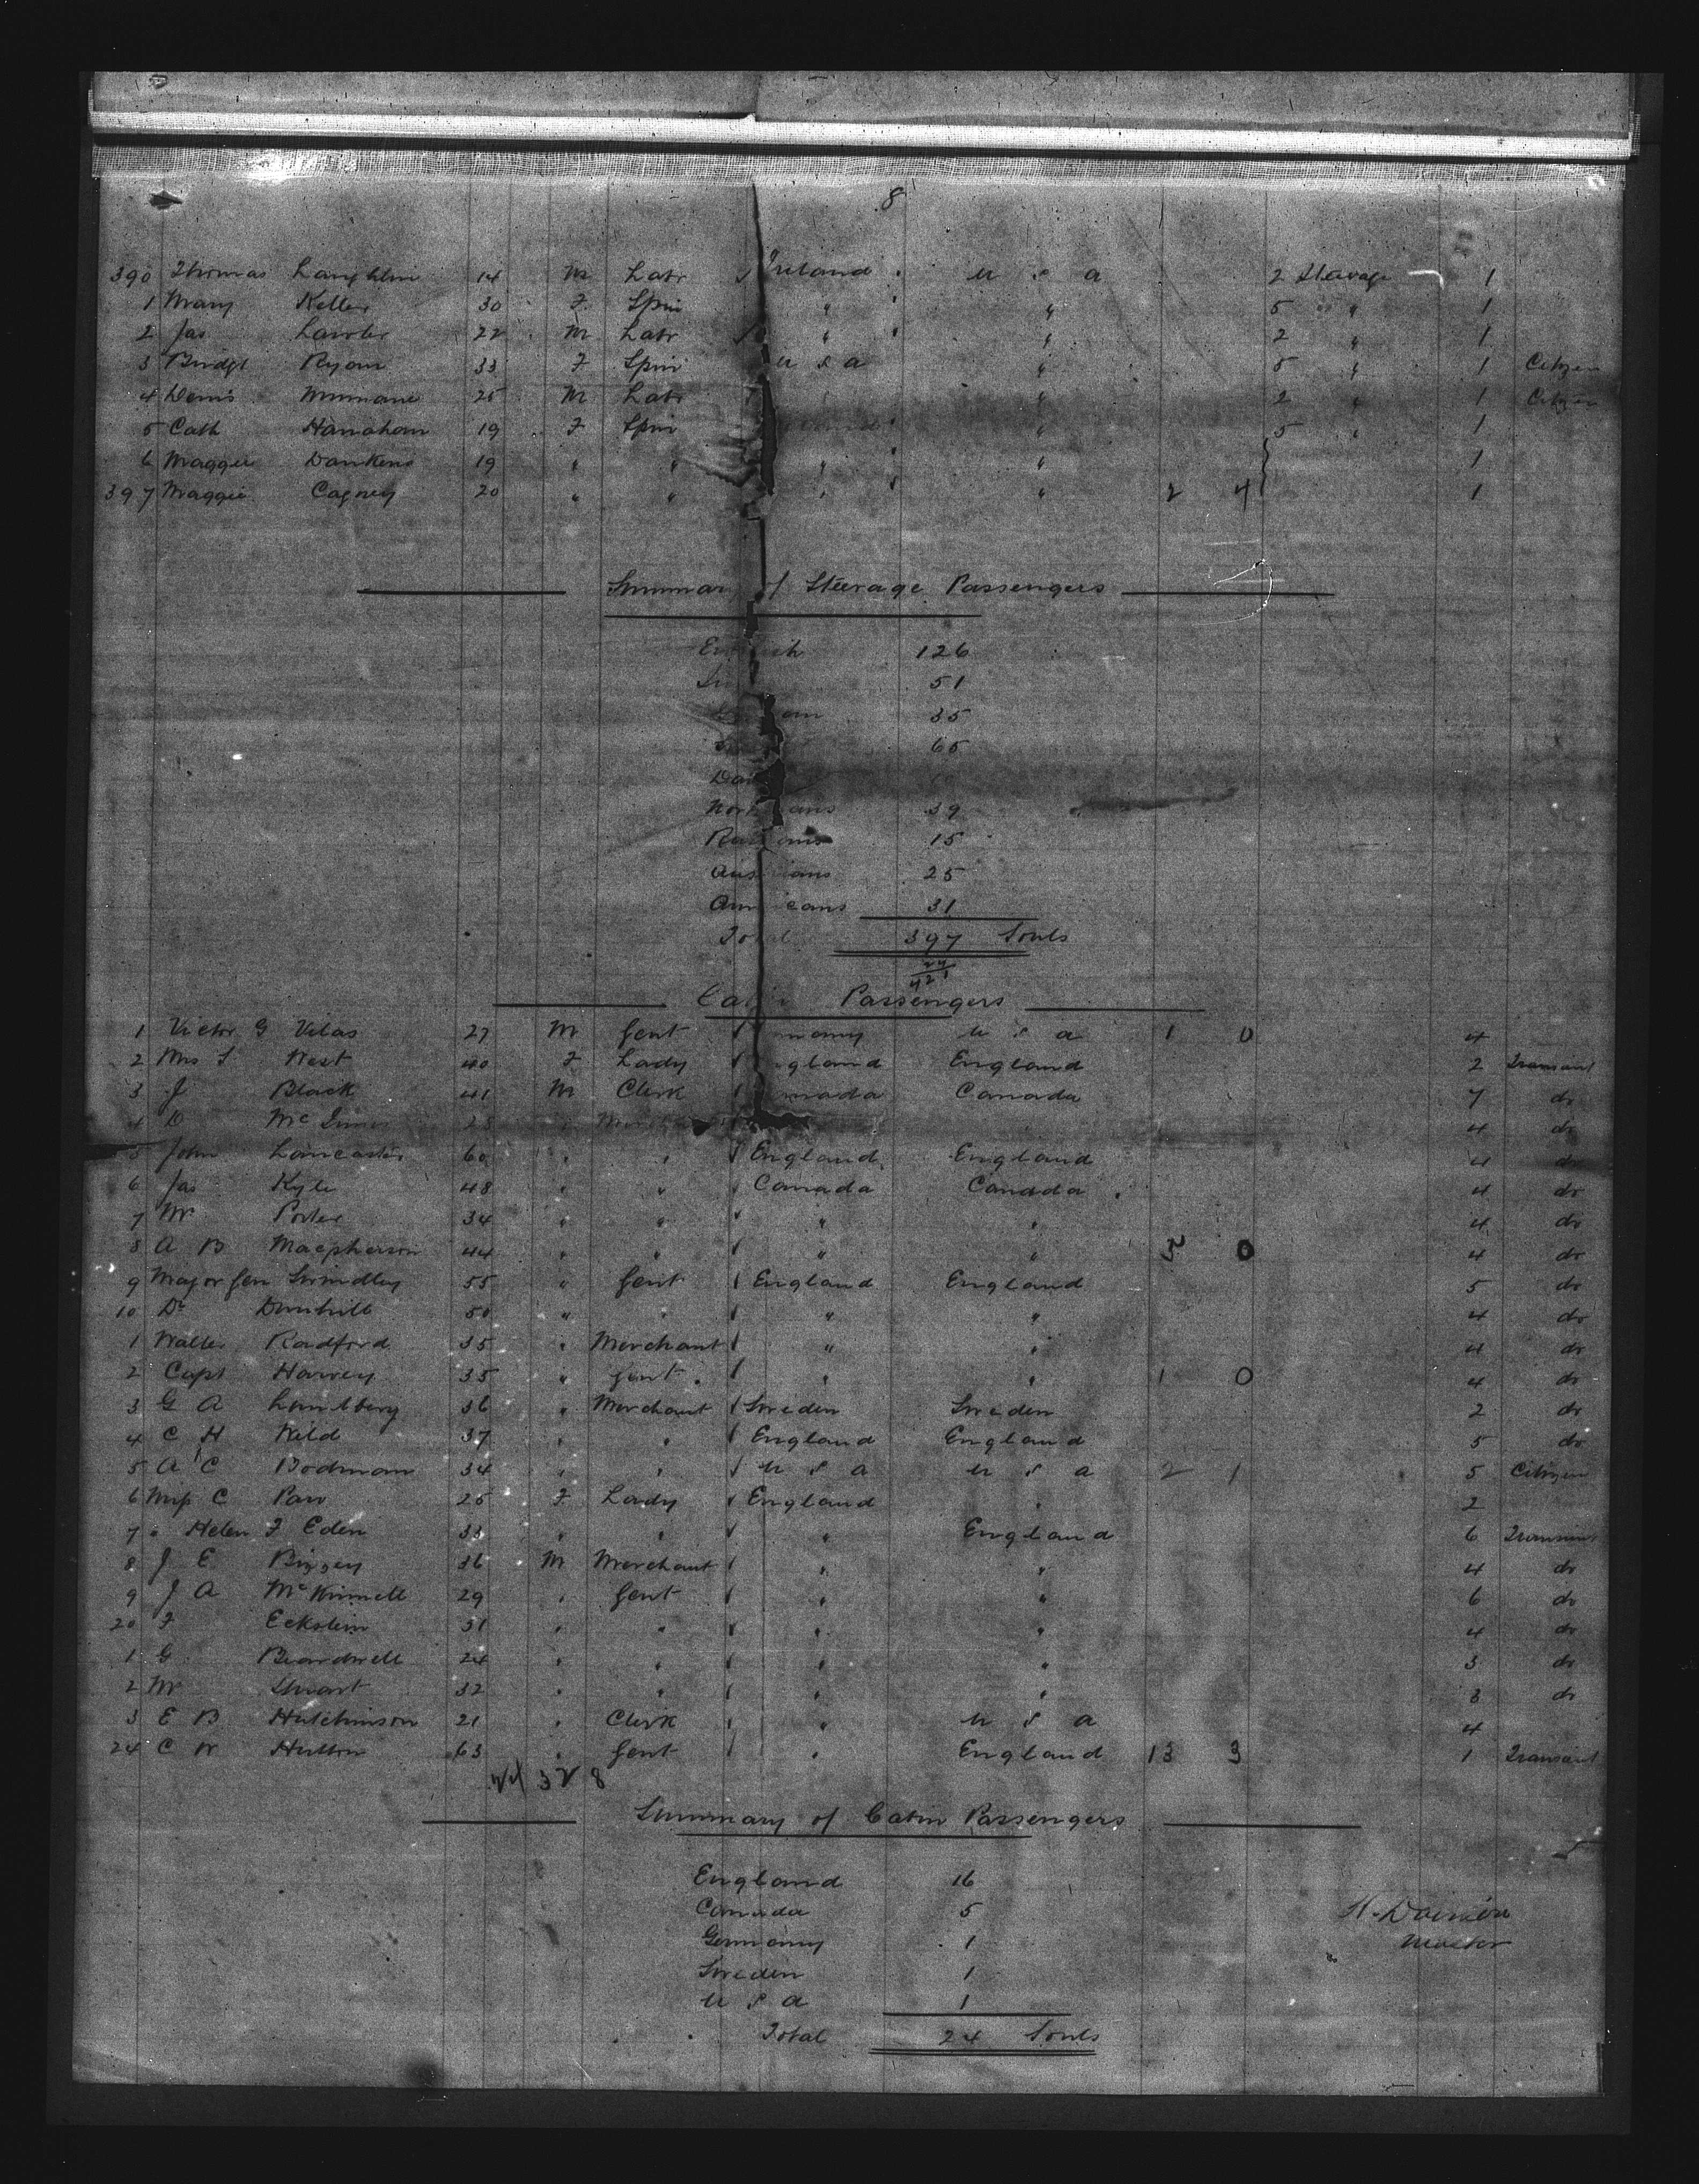 8
390 Thomas Laughlin 14 M Labr Ireland U S A 2 Steerage 1
1 Mary Keller 30 F Spin " " 5 " 1
2 Jas Lawler 22 M Labr " " 2 " 1
3 Bridgt Ryan 33 F Spin U S A " 5 " 1 Citizen
4 Denis 25 M Labr " 2 " 1 Citizen
5 Cath Hanahan 19 F Spin " 5 " 1
6 Maggie 19 " " " " 1
397 Maggie Cagney 20 " " " " 2 4 1
Summary of Steerage Passengers
English 126
51
35
65
Norwegians 39
Russians 15
Austrians 25
Americans 31
Total 397 Souls
24
421
Cabin Passengers
1 Victor G Vilas 27 M Gent Germany U S A 1 0 4
2 Mrs West 40 F Lady England England 2 Transient
3 J Black 41 M Clerk Canada Canada 7 do
4 D 4 do
5 John Lancaster 60 " " England England 4 do
6 Jas Kyle 48 " " Canada Canada 4 do
7 Mr Porter 34 " " " " 4 do
8 A B Macpherson 44 " " " " 5 0 4 do
9 Major Gen 55 " Gent England England 5 do
10 Dr Dunhill 50 " " " " 4 do
1 Walter Radford 35 " Merchant " " 4 do
2 Capt Harvey 35 " Gent " " 1 0 4 do
3 G A 36 " Merchant Sweden Sweden 2 do
4 C H 37 " " England England 5 do
5 A C Bodman 34 " " U S A U S A 2 1 5 Citizen
6 Miss C 25 F Lady England " 2
7 " Helen F Eden 33 " " " England 6 Transient
8 J E 36 M Merchant " " 4 do
9 J A McKinnell 29 " Gent " " 6 do
20 F Eckstein 31 " " " " 4 do
1 G Beardwell 24 " " " " 3 do
2 Mr Stuart 32 " " " " 3 do
3 E B Hutchinson 21 " Clerk " U S A 4
24 C W Hutton 63 " Gent " England 13 3 1 Transient
328
Summary of Cabin Passengers
England 16
Canada 5
Germany 1
Sweden 1
U S A 1
Total 24 Souls
Master